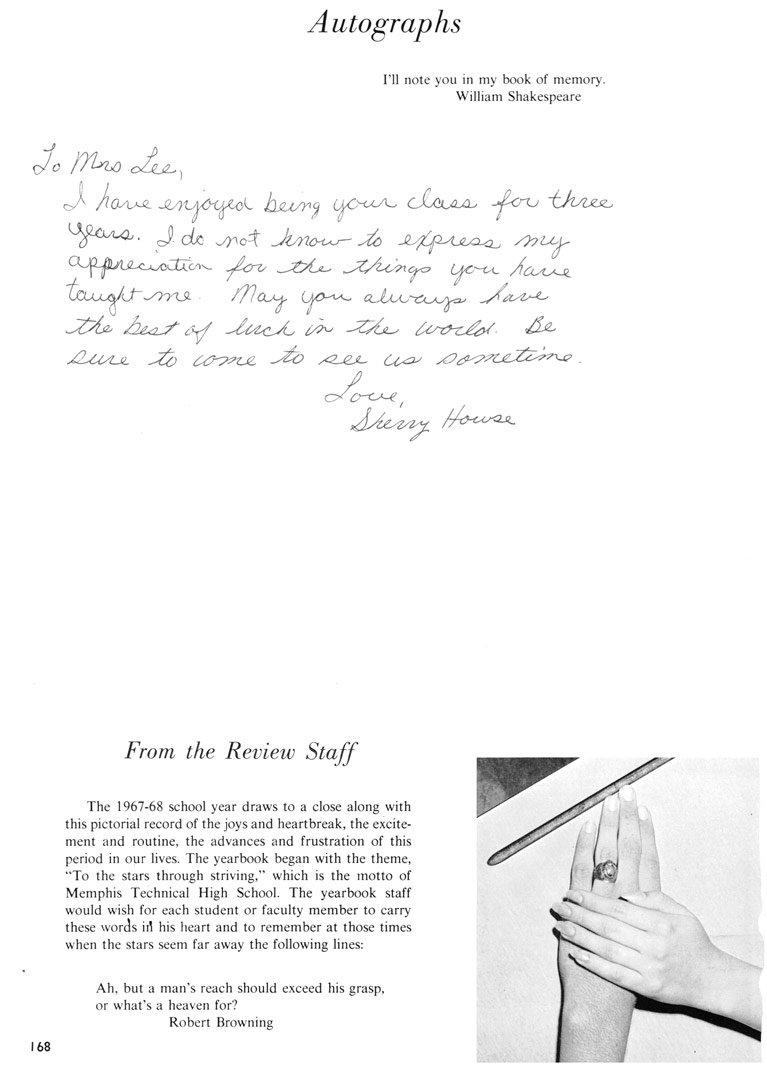 Autographs
I'll note you in my book of memory.
William Shakespeare
To Mrs Lee,
I have enjoyed being your class for three
years. I do not know to express my
appreciation for the things you have
taught me. May you always have
the best of luck in the world. Be
sure to come to see us sometime.
Love,
Sherry Howse
From the Review Staff
The 1967-68 school year draws to a close along with
this pictorial record of the joys and heartbreak, the excite-
ment and routine, the advances and frustration of this
period in our lives. The yearbook began with the theme,
"To the stars through striving," which is the motto of
Memphis Technical High School. The yearbook staff
would wish for each student or faculty member to carry
these words in his heart and to remember at those times
when the stars seem far away the following lines:
Ah, but a man's reach should exceed his grasp,
or what's a heaven for?
Robert Browning
168